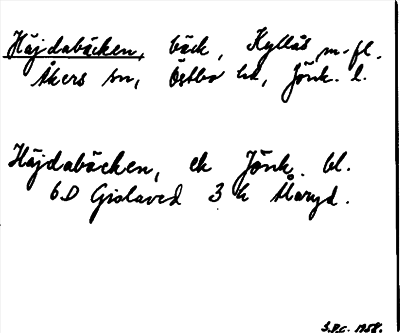 Häjdabäcken, bäck, Kyllås m. fl.
Åkers sn, Östbo hd, Jönk. l.
Häjdabäcken, ek Jönk. bl.
6D Gislaved 3 h Åmryd.
S.P.C. 1958.